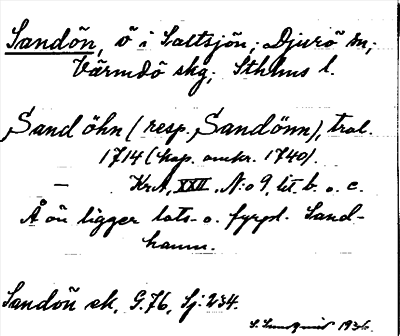 Sandön, ö i Saltsjön; Djurö sn;
Värmdö skg; Sthlms l.
Sandöhn (resp. Sandönn), tral.
1714 (kop. omkr. 1740).
— KrA, XXII, N:o 9, lit. b. o. c.
Å ön ligger lots- o. fyrpl. Sand-
hamn.
Sandön ek, G. 76, Sj: 234.
S. Lundquist 1936.